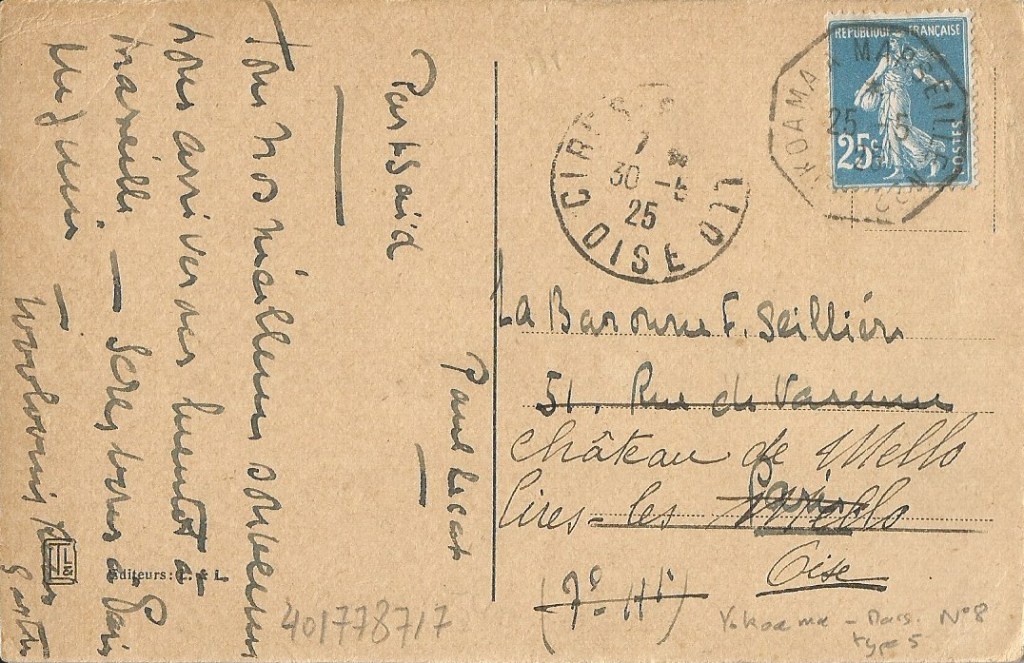 Port Saïd
Tous nos meilleurs souvenirs
nous arriverons bientôt à
Marseille — serez vous à Paris
en Juin —
Paul Lecat
Editeurs: L. & L.
REPUBLIQUE FRANÇAISE
25c
POSTES
YOKOHAMA A MARSEILLE
25 - 5
CIRES
7
30 - 5
25
OISE
La Baronne F. Seillière
51, Rue de Varenne
château de Mello
Paris
Cires-les Mello
Oise
(7e Ht)
401778717
Yokoama - Mars. N°8
type 5